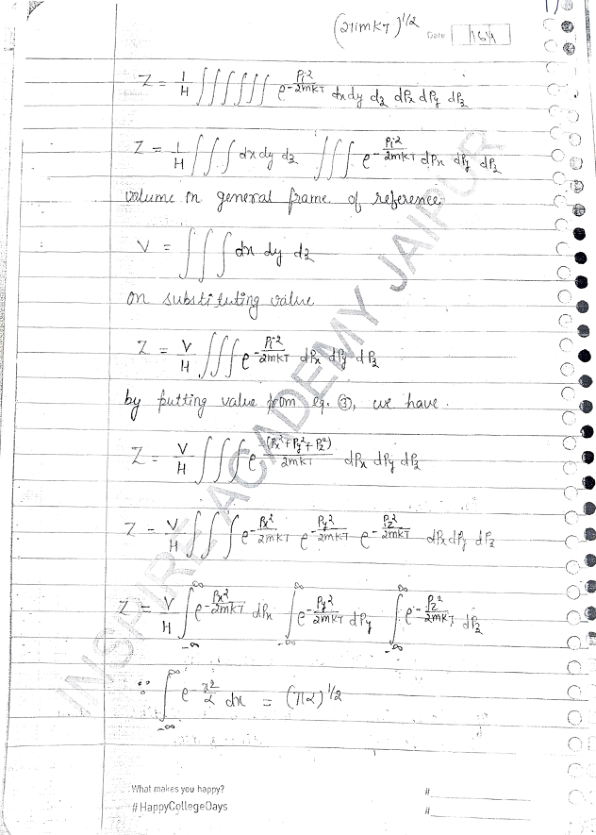 (2πmKT)^1/2
Date 164
Z = 1/H ∫∫∫∫∫∫ e^(-Pi²/2mKT) dx dy dz dPx dPy dPz
Z = 1/H ∫∫∫ dx dy dz ∫∫∫ e^(-Pi²/2mKT) dPx dPy dPz
volume in general frame of reference
V = ∫∫∫ dx dy dz
on substituting value
Z = V/H ∫∫∫ e^(-Pi²/2mKT) dPx dPy dPz
by putting value from eq. ③, we have.
Z = V/H ∫∫∫ e^(-(Px²+Py²+Pz²)/2mKT) dPx dPy dPz
Z = V/H ∫∫∫ e^(-Px²/2mKT) e^(-Py²/2mKT) e^(-Pz²/2mKT) dPx dPy dPz
Z = V/H ∫_{-∞}^{∞} e^(-Px²/2mKT) dPx ∫_{-∞}^{∞} e^(-Py²/2mKT) dPy ∫_{-∞}^{∞} e^(-Pz²/2mKT) dPz
∵ ∫_{-∞}^{∞} e^(-x²/α) dx = (πα)^1/2
INSPIRE ACADEMY JAIPUR
What makes you happy?
#HappyCollegeDays
#
#